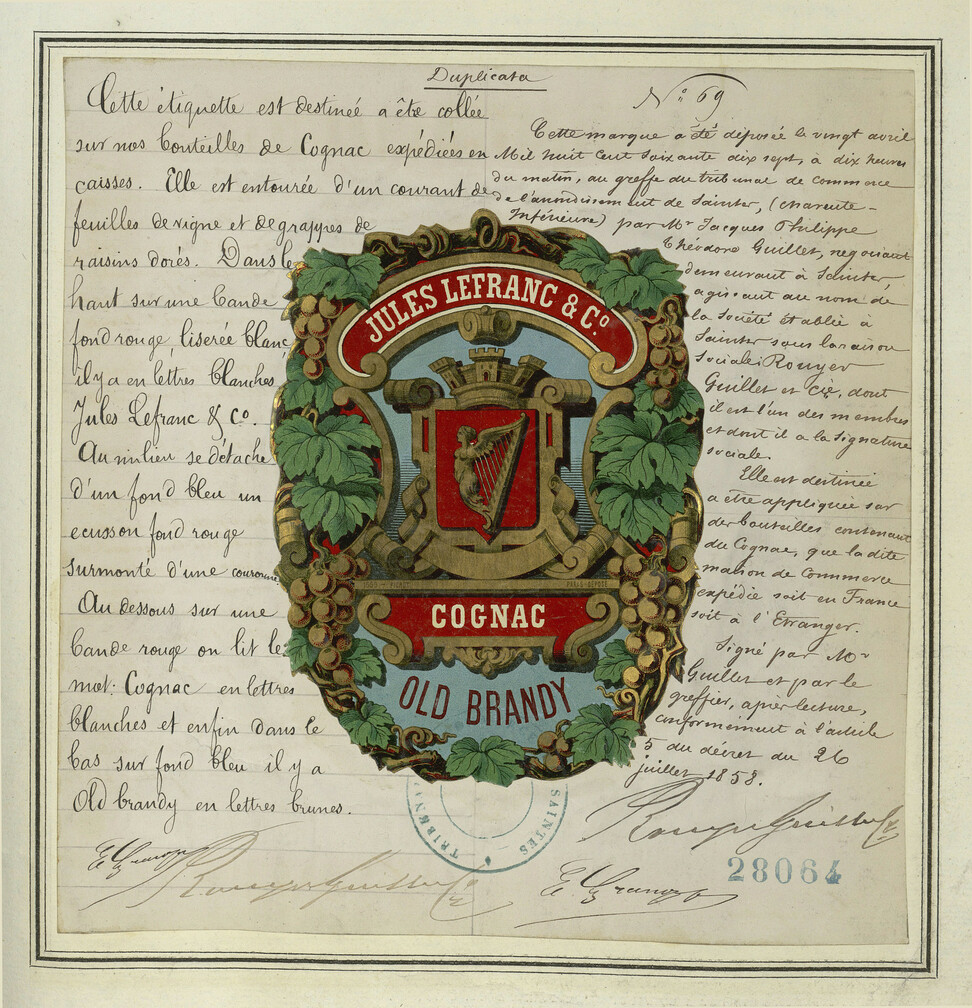 Duplicata
Cette étiquette est destinée a être collée
sur nos bouteilles de Cognac expédiées en
caisses. Elle est entourée d'un courant de
feuilles de vigne et de grappes de
raisins dorés. Dans le
haut sur une bande
fond rouge, liserée blanc,
il y a en lettres blanches
Jules Lefranc & Co.
Au milieu se détache
d'un fond bleu un
ecusson fond rouge
surmonté d'une couronne.
Au dessous sur une
bande rouge on lit le
mot: Cognac en lettres
blanches et enfin dans le
bas sur fond bleu il y a
Old brandy en lettres brunes.
No 69
Cette marque a été déposée le vingt avril
Mil huit cent soixante dix sept, à dix heures
du matin, au greffe du tribunal de commerce
de l'arrondissement de Saintes, (Charente-
Inférieure) par Mr Jacques Philippe
Théodore Guillet, negociant
demeurant à Saintes,
agissant au nom de
la Société établie à
Saintes sous la raison
sociale: Rouyer
Guillet et Cie, dont
il est l'un des membres
et dont il a la signature
sociale.
Elle est destinée
a être appliquée sur
des bouteilles contenant
du Cognac, que la dite
maison de Commerce
expédie soit en France
soit à l'Etranger.
Signé par Mr
Guillet et par le
greffier, après lecture,
conformément à l'article
5 du décret du 26
juillet 1858.
JULES LEFRANC & Co
PARIS-DÉPOSÉ
COGNAC
OLD BRANDY
SAINTES
Rouyer Guillet Co
Rouyer Guillet Co
28064